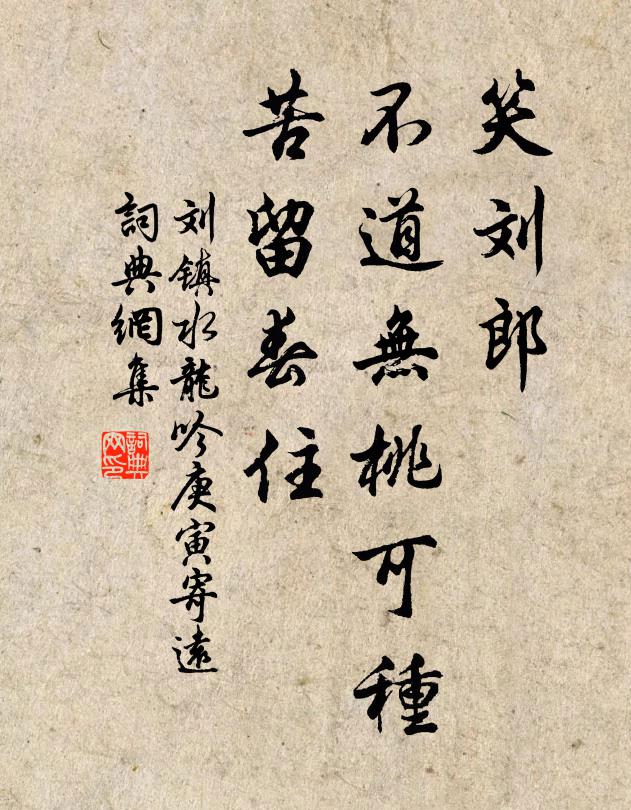 笑刘郎
不道無桃可種
苦留春住
刘镇水龍吟庚寅寄遠
詞典網集
詞典
网印